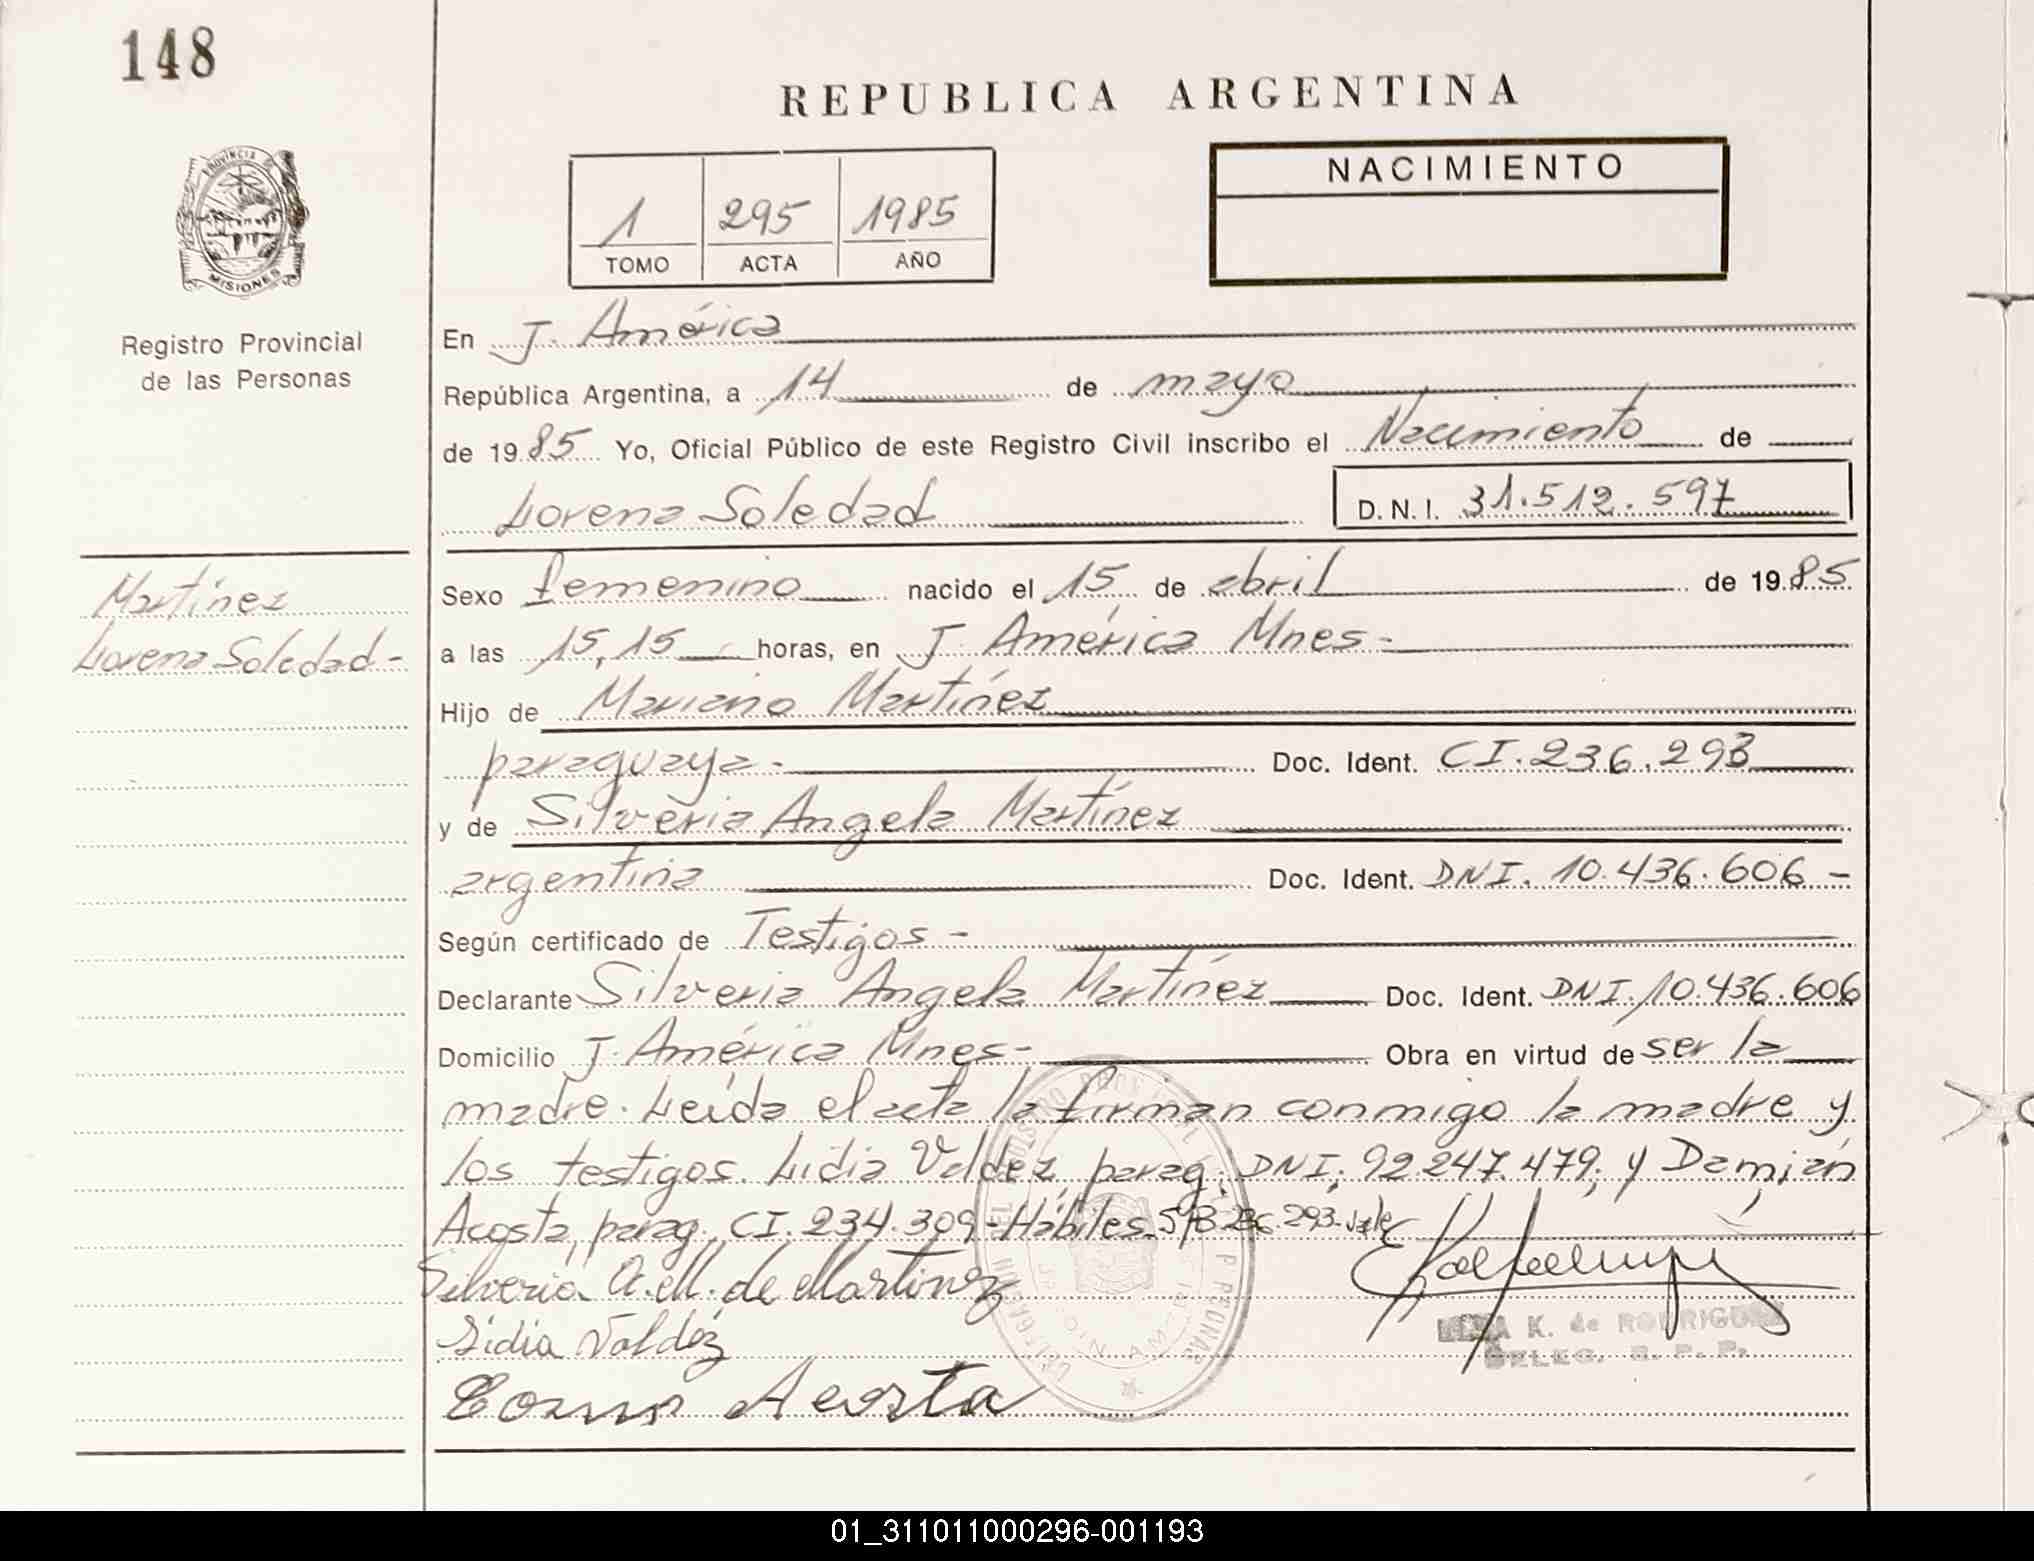 148
REPUBLICA ARGENTINA
PROVINCIA DE
MISIONES
Registro Provincial
de las Personas
1 295 1985
TOMO ACTA AÑO
NACIMIENTO
En J. América
República Argentina, a 14 de mayo
de 1985 Yo, Oficial Público de este Registro Civil inscribo el Nacimiento de
Lorena Soledad D.N.I. 31.512.597
Martínez
Lorena Soledad-
Sexo femenino nacido el 15 de abril de 1985
a las 15,15 horas, en J. América Mnes-
Hijo de Mariano Martínez
paraguaya- Doc. Ident. CI.236.293
y de Silveria Angela Martínez
argentina Doc. Ident. DNI. 10.436.606-
Según certificado de Testigos-
Declarante Silveria Angela Martínez Doc. Ident. DNI. 10.436.606
Domicilio J. América Mnes- Obra en virtud de ser la
madre. Leída el acta la firman conmigo la madre y
los testigos. Lidia Valdez, parag. DNI. 92.247.479; y Damián
Acosta, parag. CI. 234.309-Hábiles. S/B 236.293. Vale
Silveria A. M. de Martinez
Lidia Valdéz
Acosta
K. de RODRIGUEZ
DELEG. R. P. P.
01_311011000296-001193